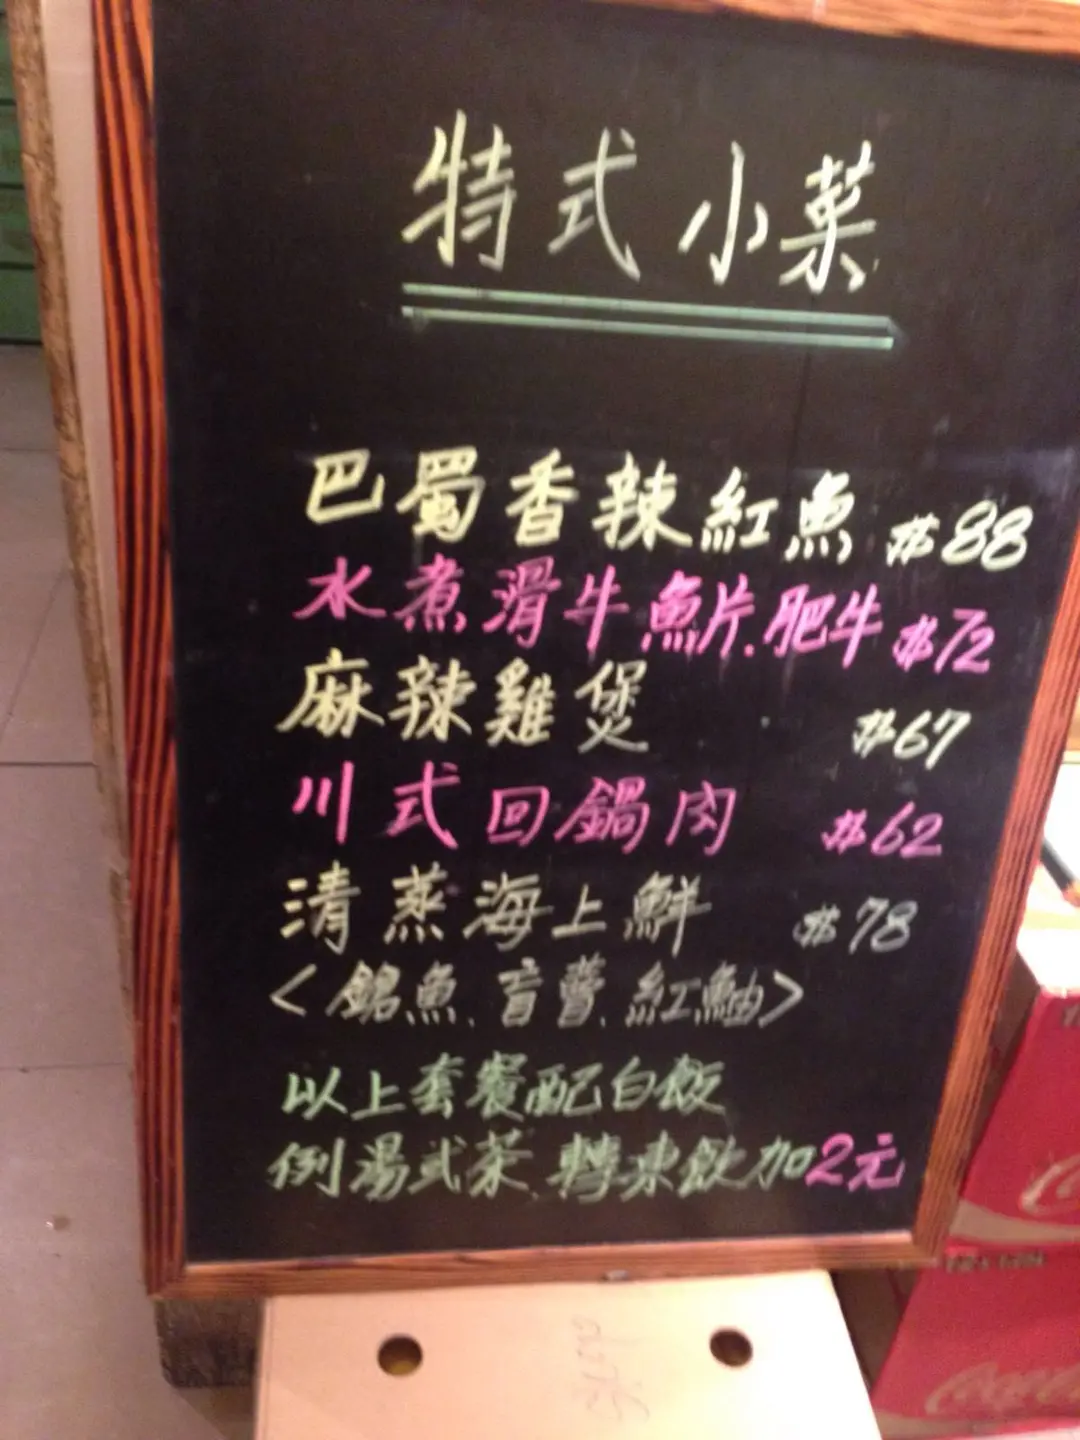 特式小菜
巴蜀香辣紅魚 $88
水煮滑牛 魚片.肥牛 $72
麻辣雞煲 $67
川式回鍋肉 $62
清蒸海上鮮 $78
以上套餐配白飯
例湯或茶.轉凍飲加2元
Coca-Cola